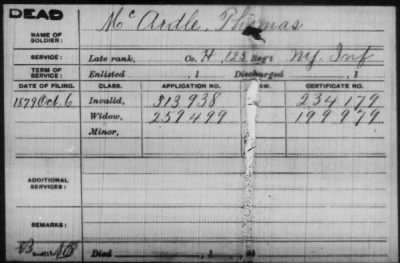 DEAD
NAME OF SOLDIER: Mc Ardle, Thomas
SERVICE: Late rank, Co. H 125 Reg't Ny. Inf
TERM OF SERVICE: Enlisted , 1 Discharged , 1
DATE OF FILING. CLASS. APPLICATION NO. LAW. CERTIFICATE NO.
1879 Oct. 6 Invalid, 313.938 234179
Widow, 259499 199979
Minor,
ADDITIONAL SERVICES:
REMARKS:
Died , 1 , at